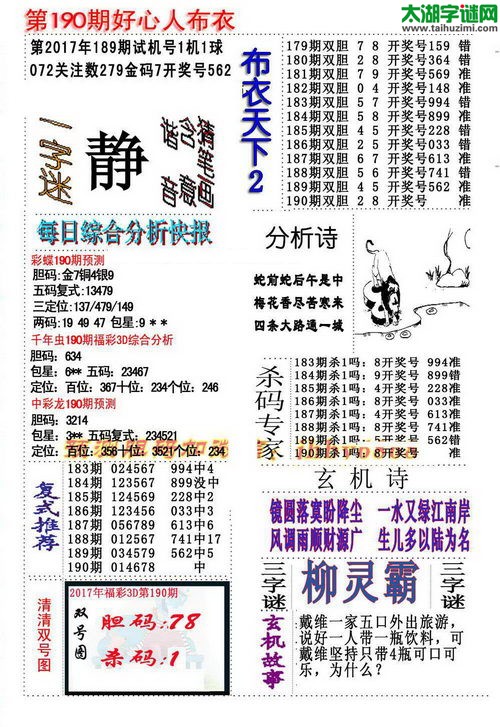 第190期好心人布衣
太湖字谜网
www.taihuzimi.com
第2017年189期试机号1机1球
072关注数279金码7开奖号562
一字迷
静
布衣天下2
179期双胆 7 8 开奖号159 错
180期双胆 2 8 开奖号364 错
181期双胆 7 9 开奖号569 准
182期双胆 0 4 开奖号148 准
183期双胆 5 7 开奖号994 错
184期双胆 5 8 开奖号899 准
185期双胆 4 5 开奖号228 错
186期双胆 2 5 开奖号033 错
187期双胆 6 7 开奖号613 准
188期双胆 5 6 开奖号741 错
189期双胆 4 5 开奖号562 准
190期双胆 2 8 开奖号 准
每日综合分析快报
彩蝶190期预测
胆码:金7铜4银9
五码复式:13479
三定位:137/479/149
两码:19 49 47 包星:9 * *
千年虫190期福彩3D综合分析
胆码: 634
包星: 6** 五码: 23467
定位: 百位: 367十位: 234个位: 246
中彩龙190期预测
胆码: 3214
包星: 3** 五码复式: 234521
定位: 百位: 356十位: 3521个位: 234
分析诗
蛇前蛇后午是中
梅花香尽苦寒来
四条大路通一城
杀码专家
183期杀1吗: 8开奖号 994准
184期杀1吗: 9开奖号 899错
185期杀1吗: 4开奖号 228准
186期杀1吗: 4开奖号 033准
187期杀1吗: 4开奖号 613准
188期杀1吗: 8开奖号 741准
189期杀1吗: 5开奖号 562错
190期杀1吗: 8开奖号 准
复式推荐
183期 024567 994中4
184期 123567 899没中
185期 124569 228中2
186期 134567 033中3
187期 056789 613中6
188期 012567 741中17
189期 034579 562中5
190期 014678 中
玄机诗
镜圆落寞盼降尘 一水又绿江南岸
风调雨顺财源广 生儿多以陆为名
清清双号图
2017年福彩3D第190期
双号图
胆码:78
杀码:1
三字谜
柳灵霸
三字谜
玄机故事
戴维一家五口外出旅游，
说好一人带一瓶饮料，可
戴维坚持只带4瓶可口可
乐，为什么？